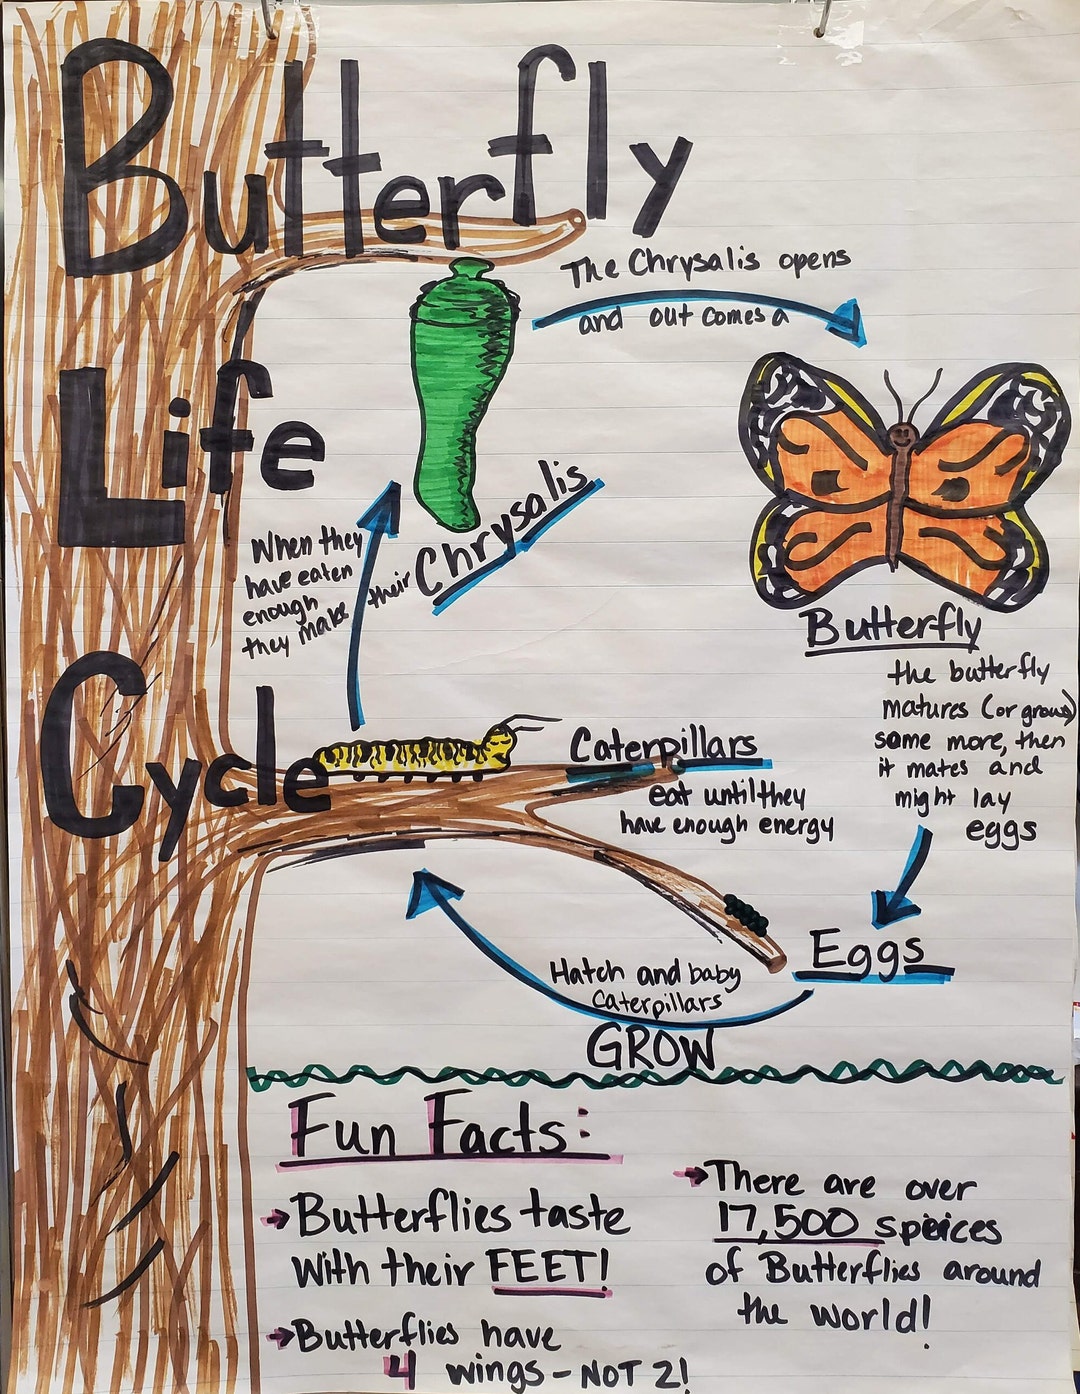 Butterfly
Life
Cycle
The Chrysalis opens
and out comes a
Butterfly
the butterfly
matures (or grows)
some more, then
it mates and
might lay
eggs
Eggs
Hatch and baby
caterpillars
GROW
Caterpillars
eat until they
have enough energy
When they
have eaten
enough
they make their
Chrysalis
Fun Facts:
→Butterflies taste
with their FEET!
→Butterflies have
4 wings - NOT 2!
→There are over
17,500 speices
of Butterflies around
the world!